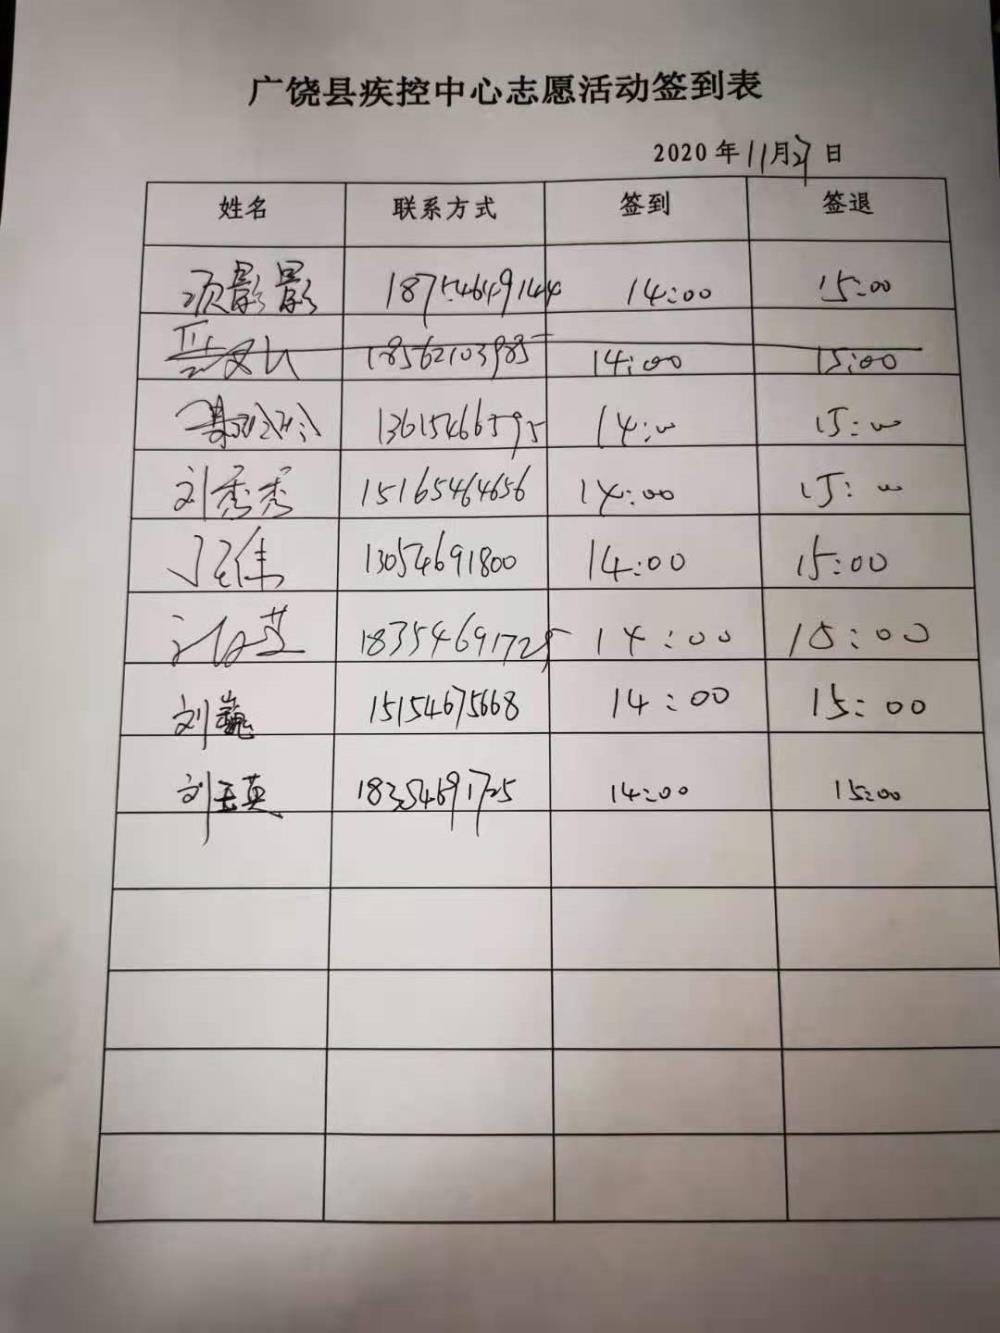 广饶县疾控中心志愿活动签到表
2020年11月27日
姓名 联系方式 签到 签退
项影影 18754649144 14:00 15:00
18562103985 14:00 15:00
13615466595 14:00 15:00
刘秀秀 15165464656 14:00 15:00
13054691800 14:00 15:00
18354691725 14:00 15:00
刘巍 15154675668 14:00 15:00
刘玉英 18354691725 14:00 15:00